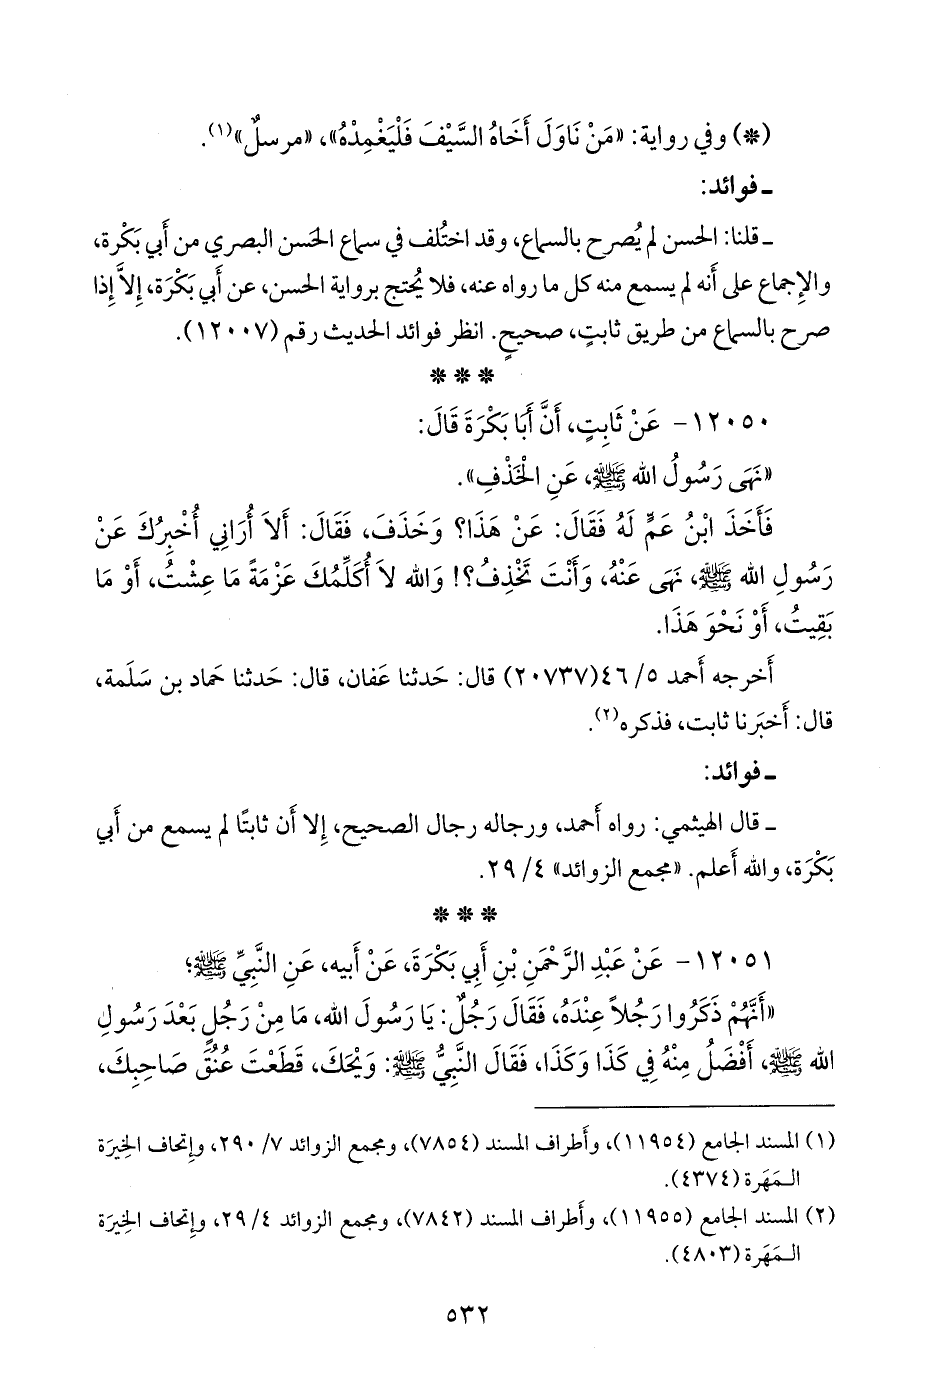 (*) وفي رواية: «مَنْ نَاوَلَ أَخَاهُ السَّيْفَ فَلْيَغْمِدْهُ»، «مرسلٌ»(١).
ـ فوائد:
ـ قلنا: الحسن لم يُصرح بالسماع، وقد اختُلف في سماع الحَسن البصري من أَبي بَكْرة،
والإِجماع على أَنه لم يسمع منه كل ما رواه عنه، فلا يُحتج برواية الحسن، عن أَبي بَكْرَة، إِلاَّ إِذا
صرح بالسماع من طريق ثابتٍ، صحيحٍ. انظر فوائد الحديث رقم (١٢٠٠٧).
* * *
١٢٠٥٠- عَنْ ثَابِتٍ، أَنَّ أَبَا بَكْرَةَ قَالَ:
«نَهَى رَسُولُ الله ﷺ، عَنِ الْخَذْفِ».
فَأَخَذَ ابْنُ عَمٍّ لَهُ فَقَالَ: عَنْ هَذَا؟ وَخَذَفَ، فَقَالَ: أَلاَ أُرَانِي أُخْبِرُكَ عَنْ
رَسُولِ الله ﷺ، نَهَى عَنْهُ، وَأَنْتَ تَخْذِفُ؟! وَالله لاَ أُكَلِّمُكَ عَزْمَةً مَا عِشْتُ، أَوْ مَا
بَقِيتُ، أَوْ نَحْوَ هَذَا.
أَخرجه أَحمد ٥/ ٤٦(٢٠٧٣٧) قال: حَدثنا عَفان، قال: حَدثنا حَماد بن سَلَمة،
قال: أَخبَرنا ثابت، فذكره(٢).
ـ فوائد:
ـ قال الهيثمي: رواه أَحمد، ورجاله رجال الصحيح، إِلا أَن ثابتًا لم يسمع من أَبي
بَكْرَة، والله أَعلم. «مجمع الزوائد» ٤/ ٢٩.
* * *
١٢٠٥١- عَنْ عَبْدِ الرَّحْمَنِ بْنِ أَبِي بَكْرَةَ، عَنْ أَبِيه، عَنِ النَّبِيِّ ﷺ؛
«أَنَّهُمْ ذَكَرُوا رَجُلاً عِنْدَهُ، فَقَالَ رَجُلٌ: يَا رَسُولَ الله، مَا مِنْ رَجُلٍ بَعْدَ رَسُولِ
الله ﷺ، أَفْضَلُ مِنْهُ فِي كَذَا وَكَذَا، فَقَالَ النَّبِيُّ ﷺ: وَيْحَكَ، قَطَعْتَ عُنُقَ صَاحِبِكَ،
(١) المسند الجامع (١١٩٥٤)، وأَطراف المسند (٧٨٥٤)، ومجمع الزوائد ٧/ ٢٩٠، وإِتحاف الخِيرَة
المَهَرة (٤٣٧٤).
(٢) المسند الجامع (١١٩٥٥)، وأَطراف المسند (٧٨٤٢)، ومجمع الزوائد ٤/ ٢٩، وإِتحاف الخِيرَة
المَهَرة (٤٨٠٣).
٥٣٢